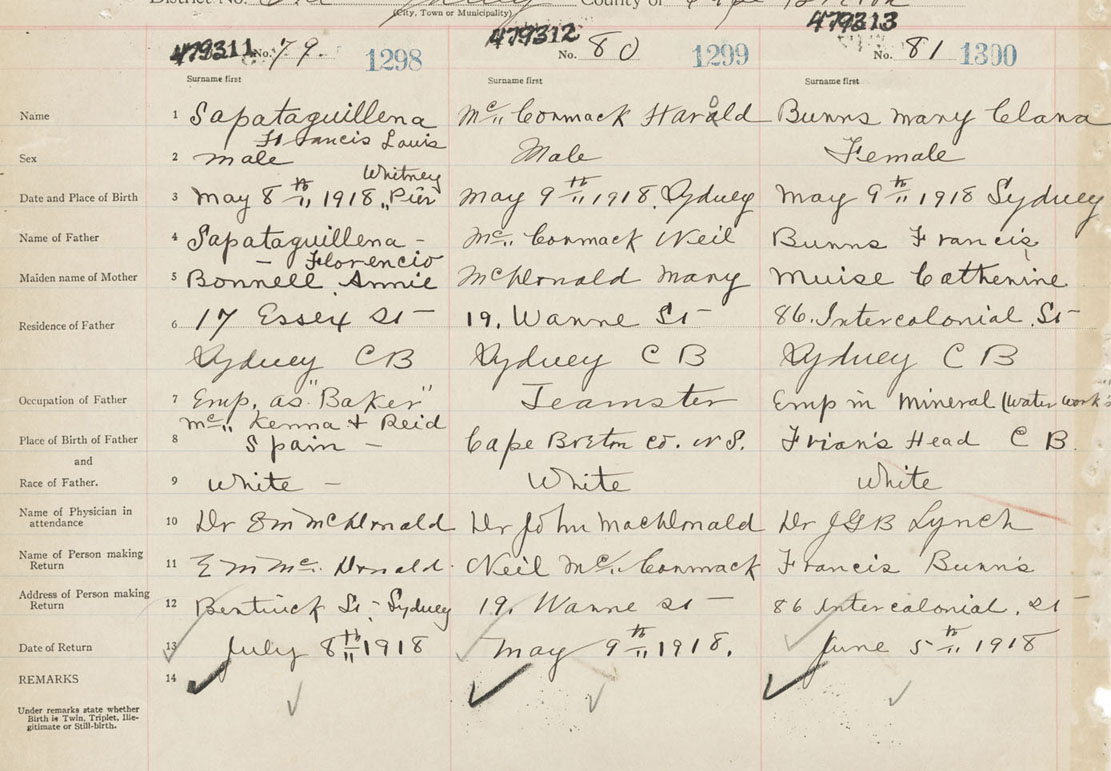 District No. County of Cape Breton
(City, Town or Municipality)
479311 No. 79. 1298 479312 No. 80 1299 479313 No. 81 1300
Surname first Surname first Surname first
Name 1 Sapataguillena Mc Cormack Harold Burns Mary Clara
Francis Louis
Sex 2 Male Male Female
Whitney
Date and Place of Birth 3 May 8th 1918, Pier May 9th 1918, Sydney May 9th 1918 Sydney
Name of Father 4 Sapataguillena - Mc Cormack Neil Burns Francis
- Florencio
Maiden name of Mother 5 Bonnell, Annie McDonald Mary Muise Catherine
Residence of Father 6 17 Essex St 19. St 86. Intercolonial. St
Sydney C B Sydney C B Sydney C B
Occupation of Father 7 Emp. as "Baker" Teamster Emp in Mineral (Water Works
Mc Kenna + Reid
Place of Birth of Father 8 Spain - Cape Breton Co. N S. Friar's Head C B.
and
Race of Father. 9 White - White White
Name of Physician in attendance 10 Dr E M McDonald Dr John MacDonald Dr J G B Lynch
Name of Person making Return 11 E M Mc Donald. Neil Mc Cormack Francis Burns
Address of Person making Return 12 St - Sydney 19. St 86 Intercolonial. St
Date of Return 13 July 8th 1918 May 9th 1918. June 5th 1918
REMARKS 14
Under remarks state whether
Birth is Twin, Triplet, Ille-
gitimate or Still-birth.